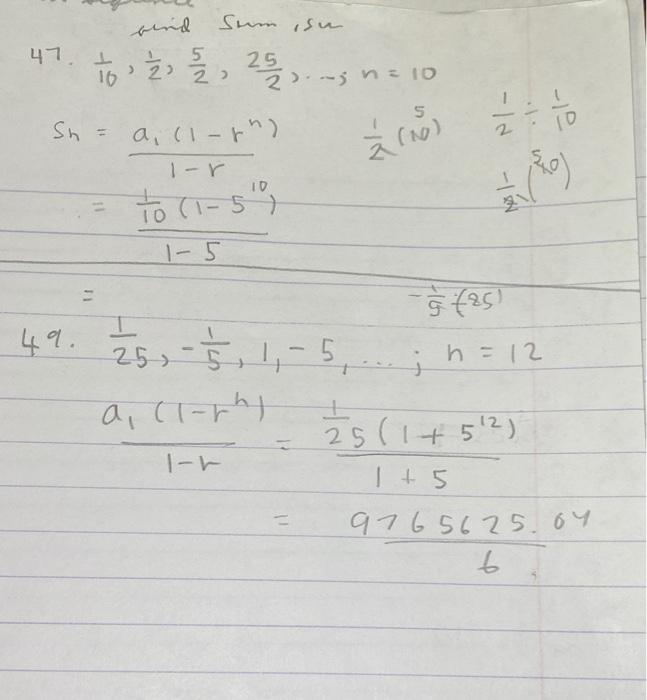 find Sum, Sn
47. 1/10, 1/2, 5/2, 25/2, ...; n = 10
Sn = a₁(1-rⁿ)/(1-r)
1/2(10) 5
1/2 ÷ 1/10
= 1/10(1-5¹⁰)/(1-5)
1/2(10) 5
=
-1/5 ÷(25)
49. 1/25, -1/5, 1, -5, ...; n = 12
a₁(1-rⁿ)/(1-r) = 1/25(1+5¹²)/(1+5)
= 9765625.04/6